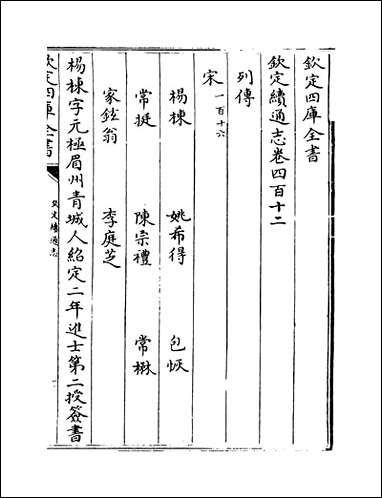 欽定四庫全書
欽定續通志卷四百十二
列傳
宋一百十六
楊棟 姚希得 包恢
常挺 陳宗禮 常楙
家鉉翁 李庭芝
楊棟字元極眉州青城人紹定二年進士第二授簽書
欽定四庫全書
欽定續通志